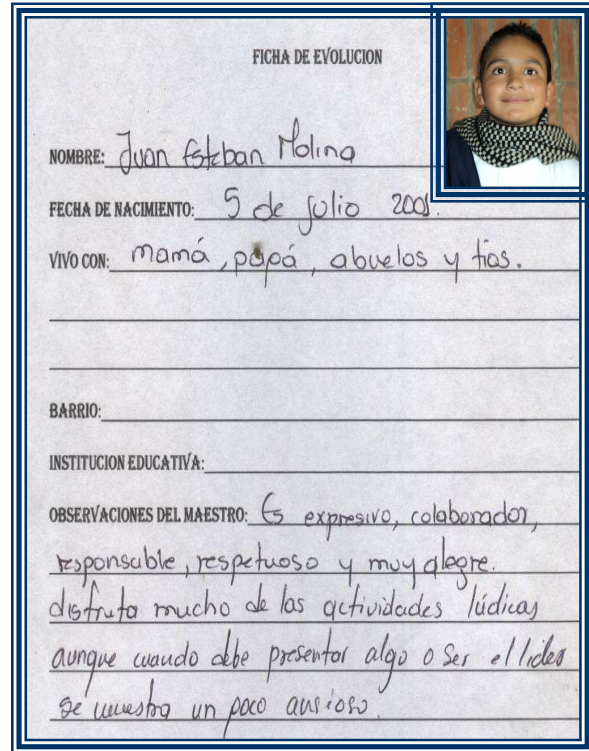 FICHA DE EVOLUCION
NOMBRE: Juan Esteban Molina
FECHA DE NACIMIENTO: 5 de julio 2001.
VIVO CON: mamá, papá, abuelos y tias.
BARRIO:
INSTITUCION EDUCATIVA:
OBSERVACIONES DEL MAESTRO: Es expresivo, colaborador,
responsable, respetuoso y muy alegre.
disfruta mucho de las actividades lúdicas
aunque cuando debe presentar algo o ser el lider
se muestra un poco ansioso.